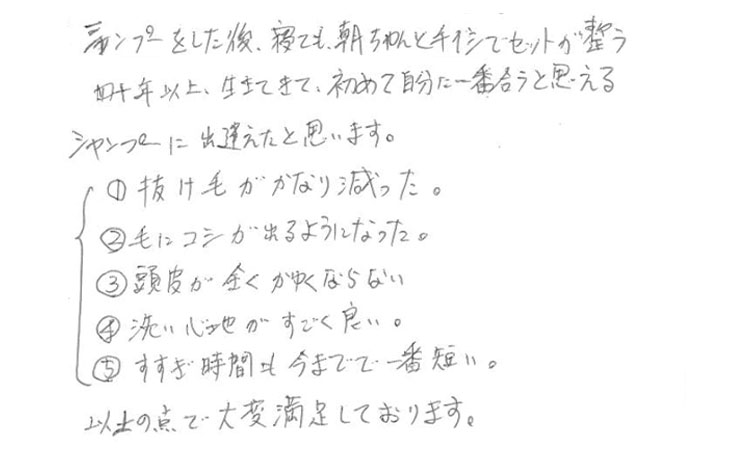 シャンプーをした後、寝ても、朝ちゃんと手グシでセットが整う
四十年以上、生きてきて、初めて自分に一番合うと思える
シャンプーに出逢えたと思います。
①抜け毛がかなり減った。
②毛にコシが出るようになった。
③頭皮が全くかゆくならない
④洗い心地がすごく良い。
⑤すすぎ時間も今までで一番短い。
以上の点で大変満足しております。